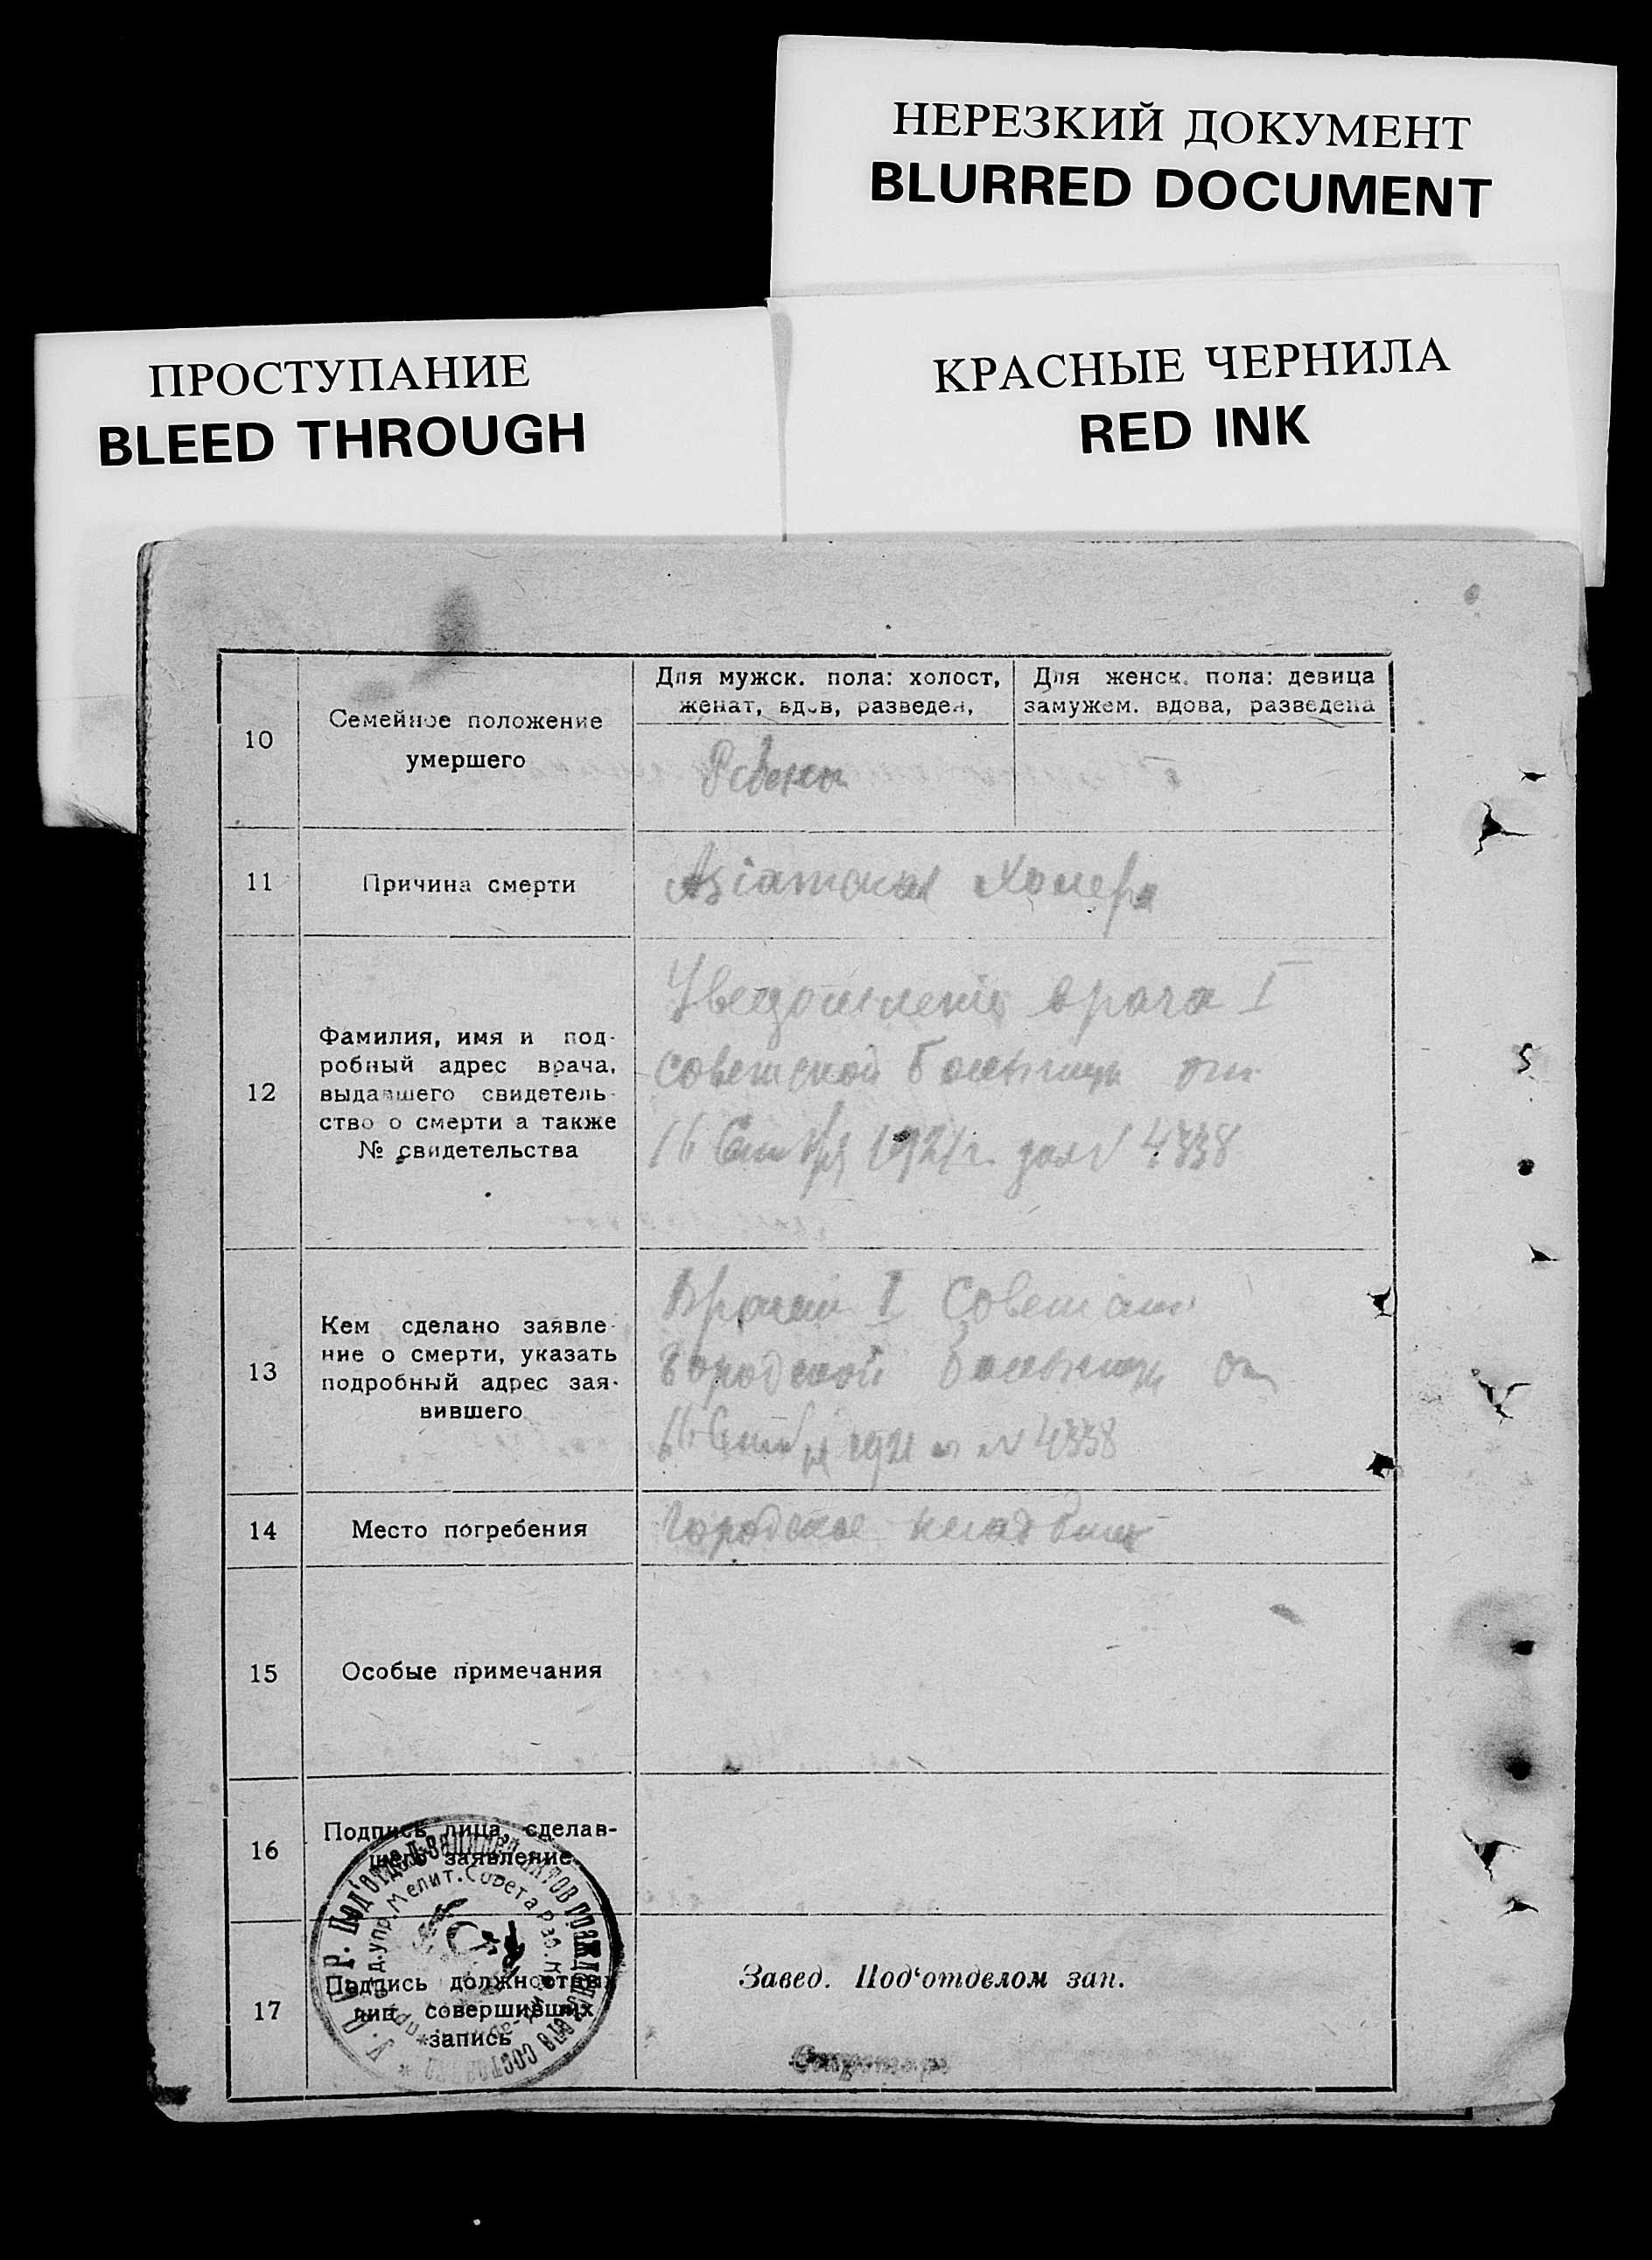 НЕРЕЗКИЙ ДОКУМЕНТ
BLURRED DOCUMENT
ПРОСТУПАНИЕ
BLEED THROUGH
КРАСНЫЕ ЧЕРНИЛА
RED INK
10
Семейное положение
умершего
Для мужск. пола: холост,
женат, вдов, разведен,
Для женск. пола: девица
замужем. вдова, разведена
11
Причина смерти
Азіатская Холера
12
Фамилия, имя и под-
робный адрес врача,
выдавшего свидетель-
ство о смерти а также
№ свидетельства
врача I
советской больницы от
1921 г. за № 4338
13
Кем сделано заявле-
ние о смерти, указать
подробный адрес зая-
вившего
I
городской больницы от
1921 № 4338
14
Место погребения
Городское кладбище
15
Особые примечания
16
Подпись лица, сделав-
шего заявление
17
Подпись должностных
лиц совершивших
запись
Завед. Под‘отделом зап.
Секретарь